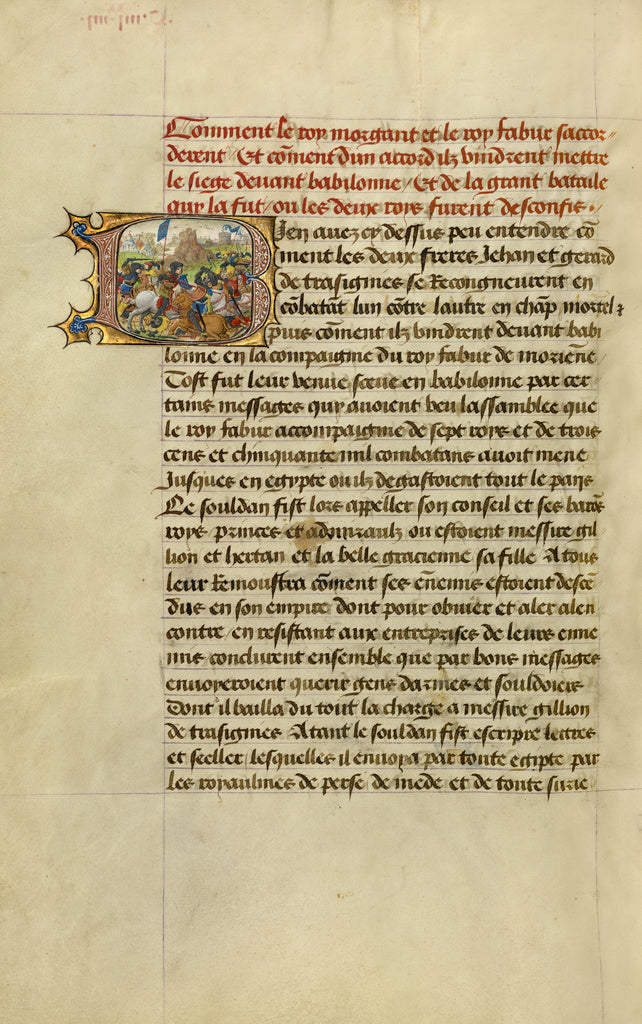 Comment le roy morgant et le roy fabur saccor-
derent / Et cõment dun accord ilz vindrent mettre
le siege deuant babilonne / Et de la grant bataile
quy la fut / ou les deux roys furent desconfis .
Bien auez cy dessus peu entendre cõ
ment les deux freres Jehan et gerard
de trasignies se Recongneurent en
cõbatãt lun cõtre lautre en chãp mortel z
puis cõment ilz vindrent deuant babi
lonne en la compaignie du roy fabur de moriene
Tost fut leur venue sceue en babilonne par cer-
tains messages quy auoient veu lassamblee que
le roy fabur accompaignie de sept roys et de trois
cens et chinquante mil combatans auoit mene
Jusques en egypte ou ilz degastoient tout le pays
Le souldan fist lors appeller son conseil et ses barõs
roys princes et admiraulz ou estoient messire gil
lion et hertan et la belle gracienne sa fille A tous
leur Remoustra cõment ses ẽnemis estoient descẽ
dus en son empire dont pour obuier et aler alen
contre en resistant aux entreprises de leurs enne
mis conclurent ensemble que par bons messages
enuoyeroient querir gens darmes et souldoiers
Dont il bailla du tout la charge a messire gillion
de trasignies Atant le souldan fist escripre lettres
et seeller lesquelles il enuoya par toute egipte par
les royaulmes de perse de mede et de toute surie